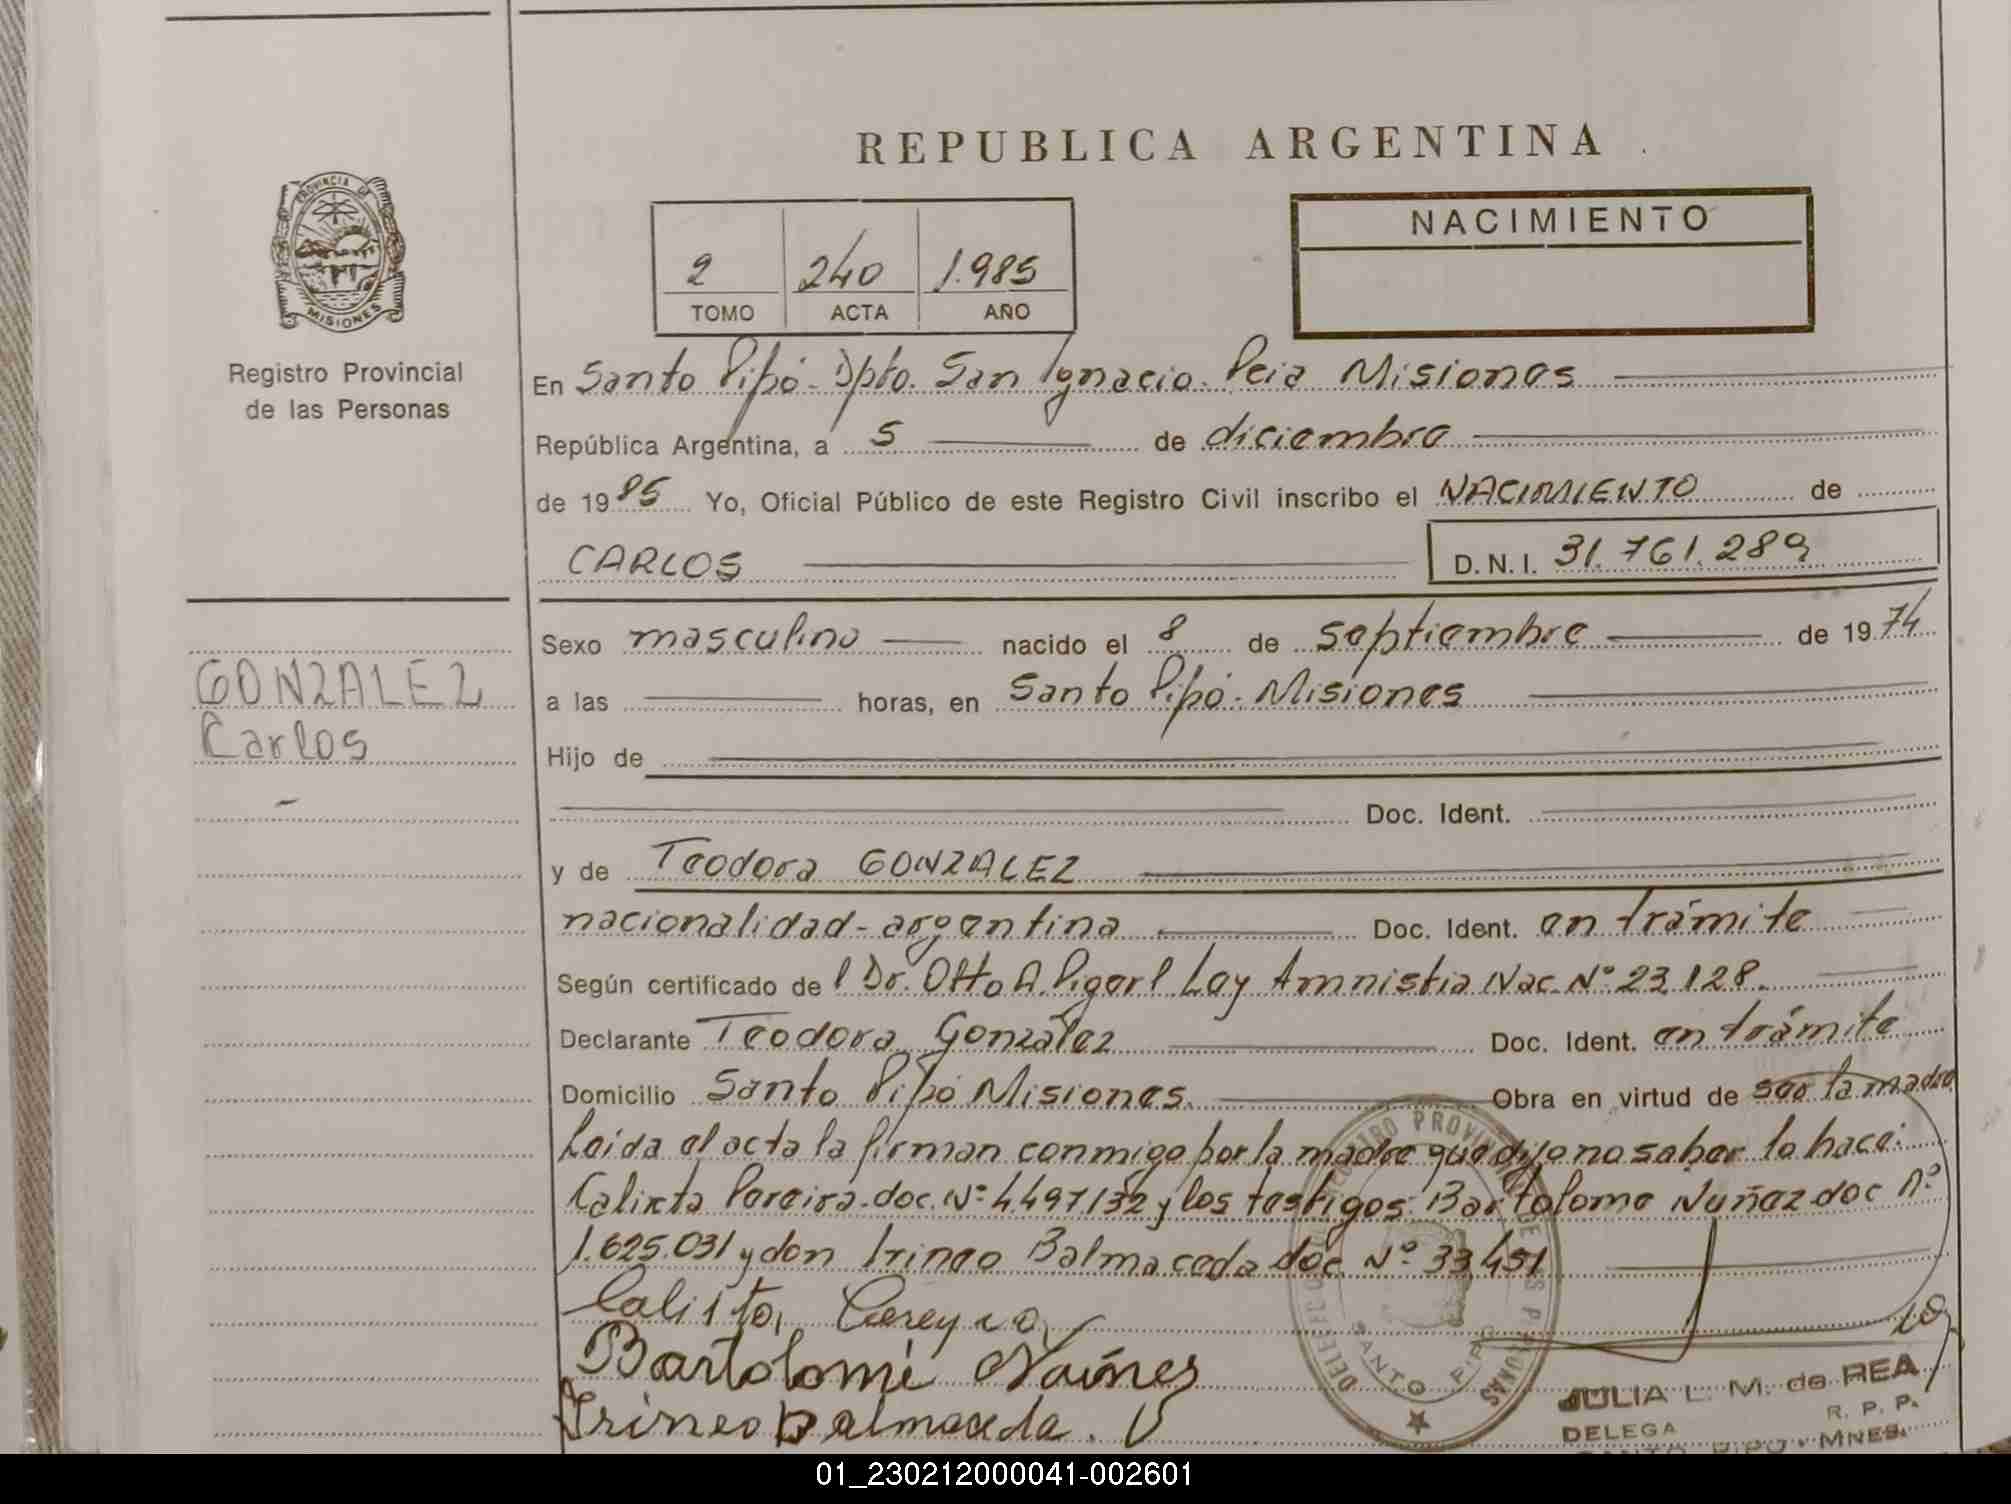 REPUBLICA ARGENTINA
PROVINCIA DE
MISIONES
Registro Provincial
de las Personas
2 240 1.985
TOMO ACTA AÑO
NACIMIENTO
En Santo Pipó - Dpto. San Ignacio - Pcia Misiones
República Argentina, a 5 de diciembre
de 1985 Yo, Oficial Público de este Registro Civil inscribo el NACIMIENTO de
CARLOS D. N. I. 31.761.289
GONZALEZ
Carlos
Sexo masculino nacido el 8 de septiembre de 1974
a las horas, en Santo Pipó - Misiones
Hijo de
Doc. Ident.
y de Teodora GONZALEZ
nacionalidad - argentina Doc. Ident. en trámite
Según certificado del Dr. Otto A. Pigerl Ley Amnistia Nac. Nº 23.128.
Declarante Teodora González Doc. Ident. en trámite
Domicilio Santo Pipó Misiones. Obra en virtud de ser la madre
Leida el acta la firman conmigo por la madre que dijo no saber lo hace:
Calixta Pereira doc. Nº 4.497.132 y los testigos: Bartolome Nuñez doc Nº
1.625.031 y don Irineo Balmaceda doc Nº 33.451
Calista Pereyra
Bartolomé Nuñes
Irineo Balmaceda.
SANTO PIPO
JULIA L. M. de REA
DELEGA R. P. P.
SANTO PIPO - MNES.
01_230212000041-002601